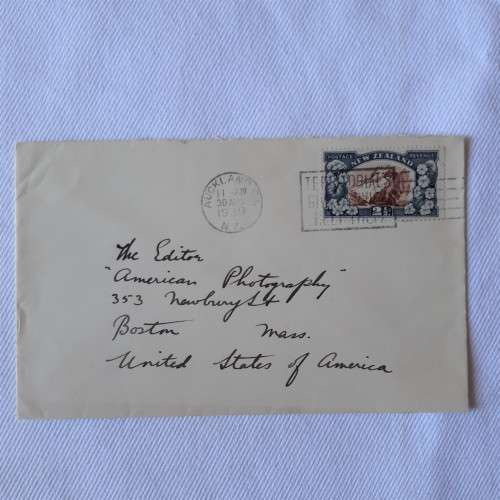 POSTAGE REVENUE
NEW ZEALAND
2½
AUCKLAND
11-AM
30
1939
N.Z.
The Editor
"American Photography"
353 Newbury St
Boston Mass.
United States of America